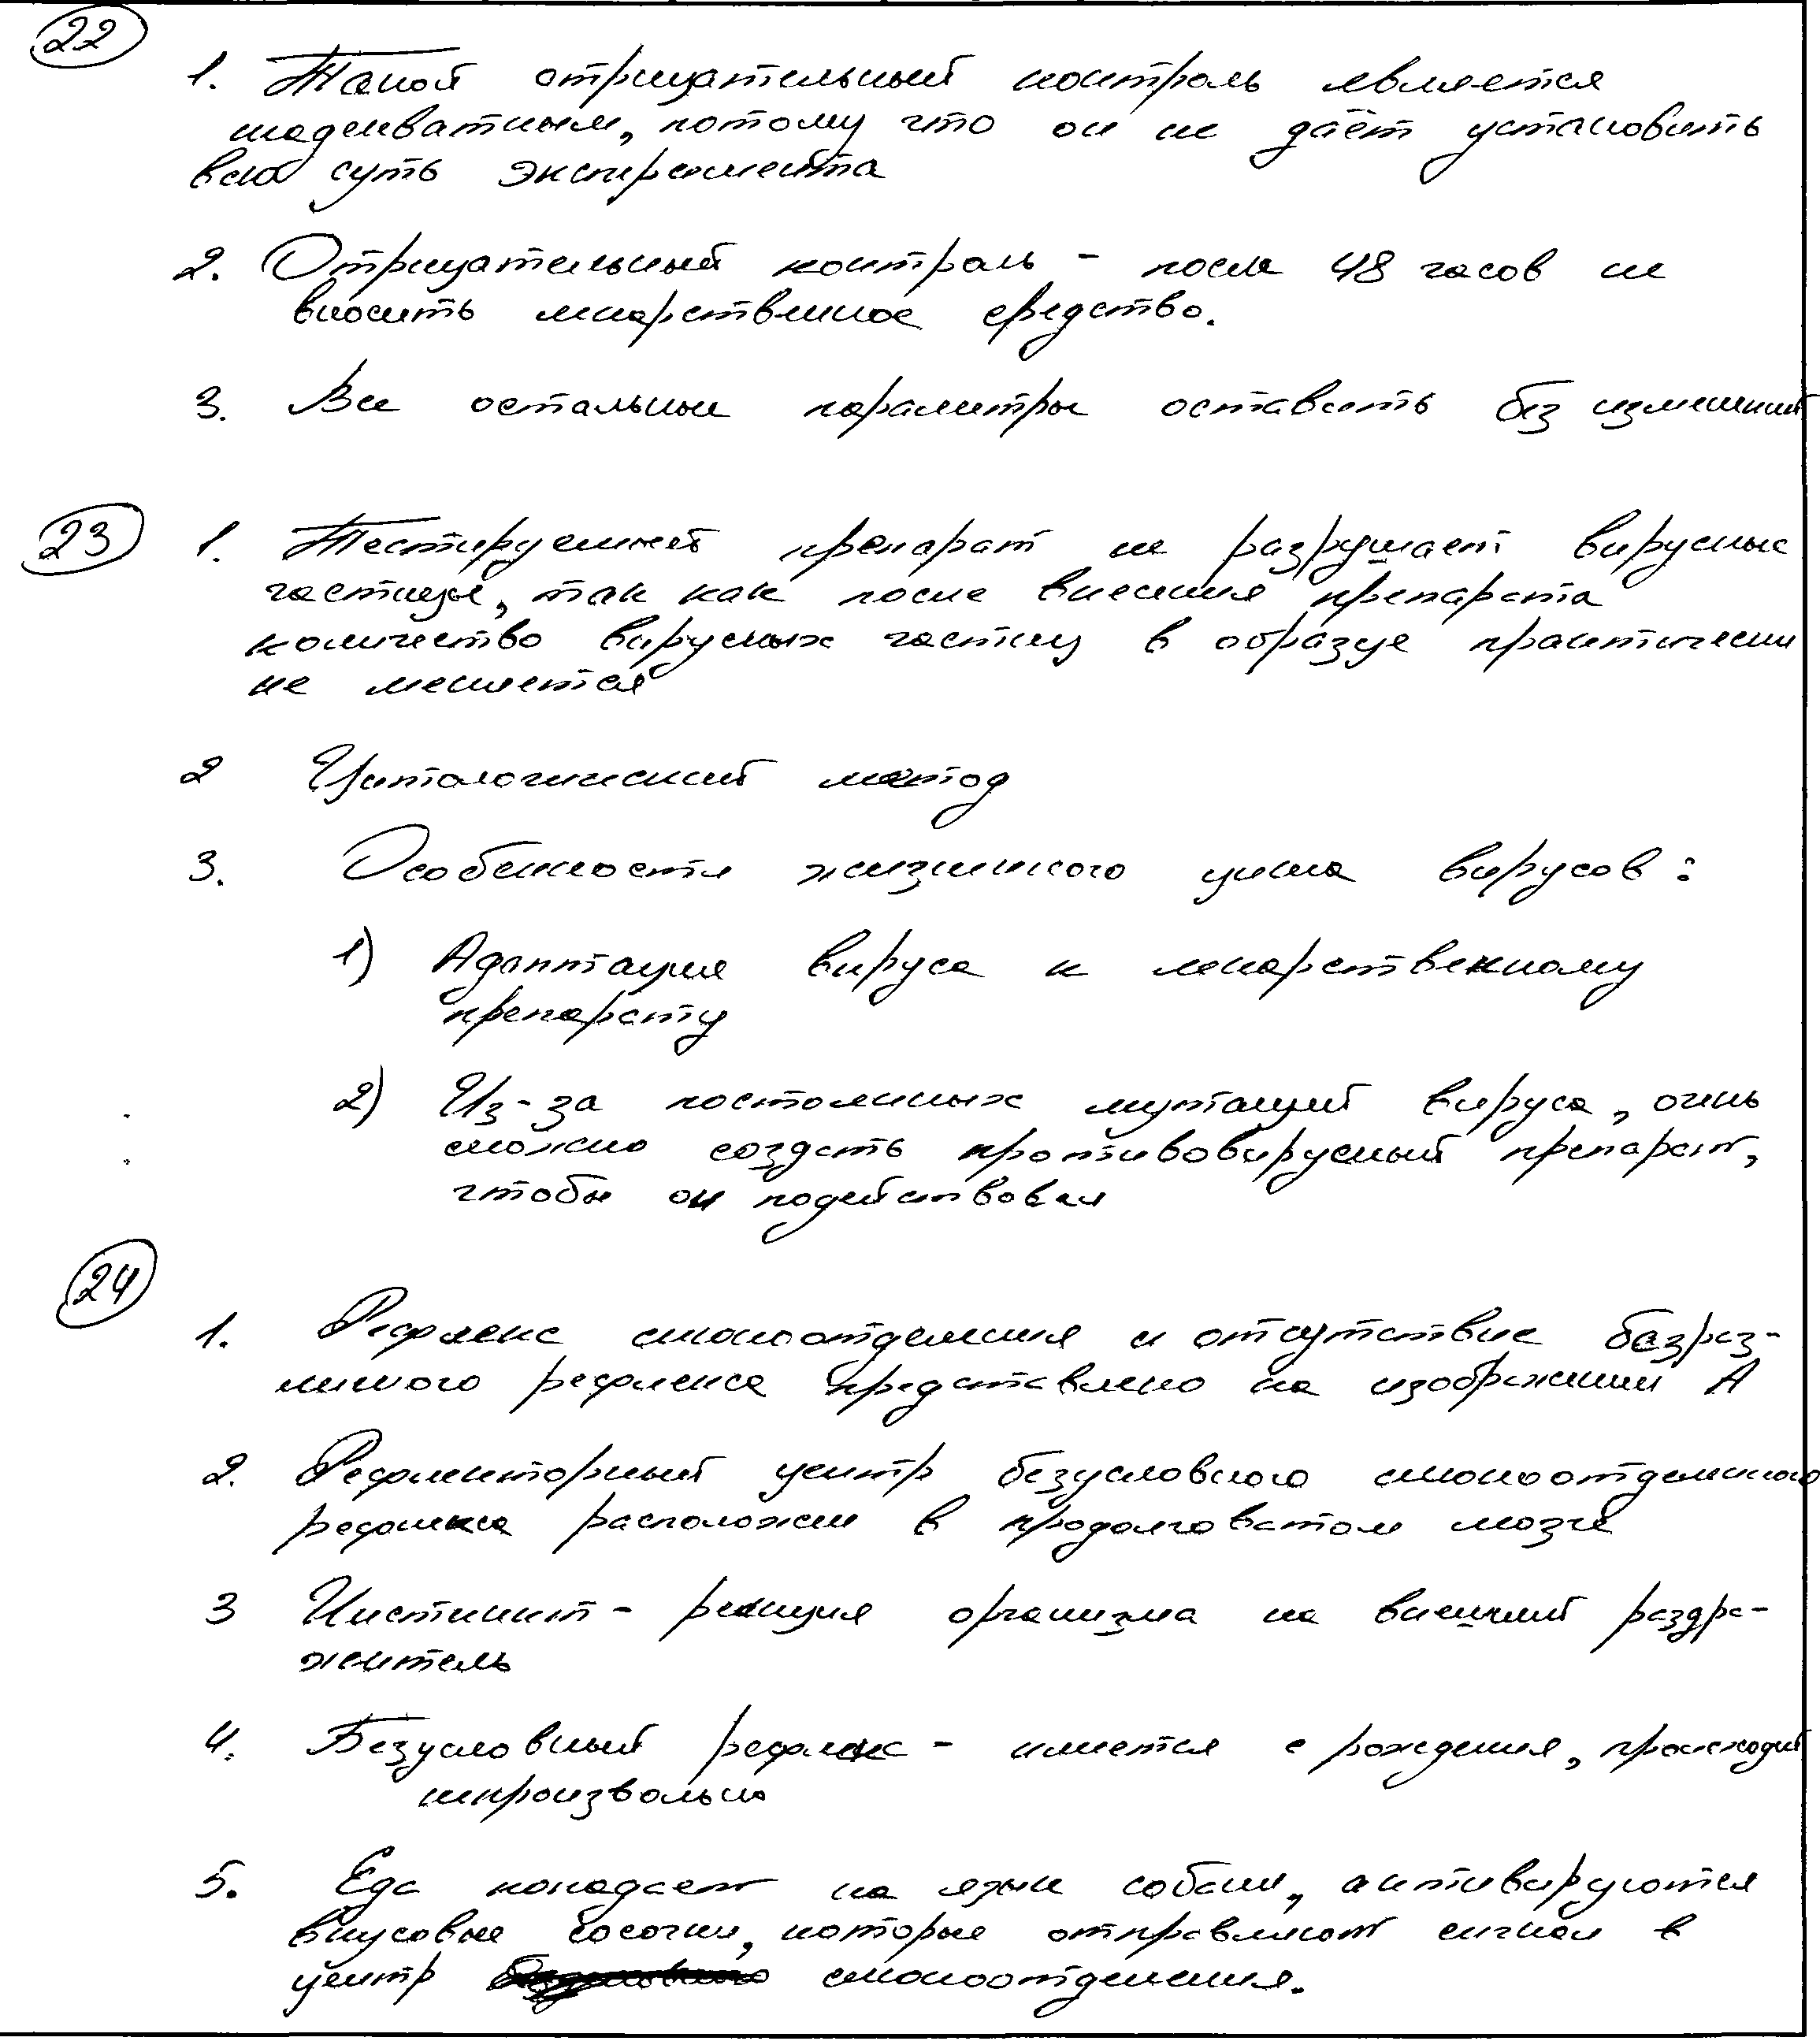 22
1. Такой отрицательный контроль является
неадекватным, потому что он не даёт установить
всю суть эксперимента
2. Отрицательный контроль - после 48 часов не
вносить лекарственное средство.
3. Все остальные параметры оставить без изменений
23
1. Тестируемый препарат не разрушает вирусные
частицы, так как после внесения препарата
количество вирусных частиц в образце практически
не меняется
2 Цитологический метод
3. Особенности жизненного цикла вирусов:
1) Адаптация вируса к лекарственному
препарату
2) Из-за постоянных мутаций вируса, очень
сложно создать противовирусный препарат,
чтобы он подействовал
24
1. Рефлекс слюноотделения и отсутствие безраз-
личного рефлекса представлено на изображении А
2. Рефлекторный центр безусловного слюноотделительного
рефлекса расположен в продолговатом мозге
3 Инстинкт - реакция организма на внешний раздра-
житель
4. Безусловный рефлекс - имеется с рождения, происходит
непроизвольно
5. Еда попадает на язык собаки, активируются
вкусовые сосочки, которые отправляют сигнал в
центр слюноотделения.